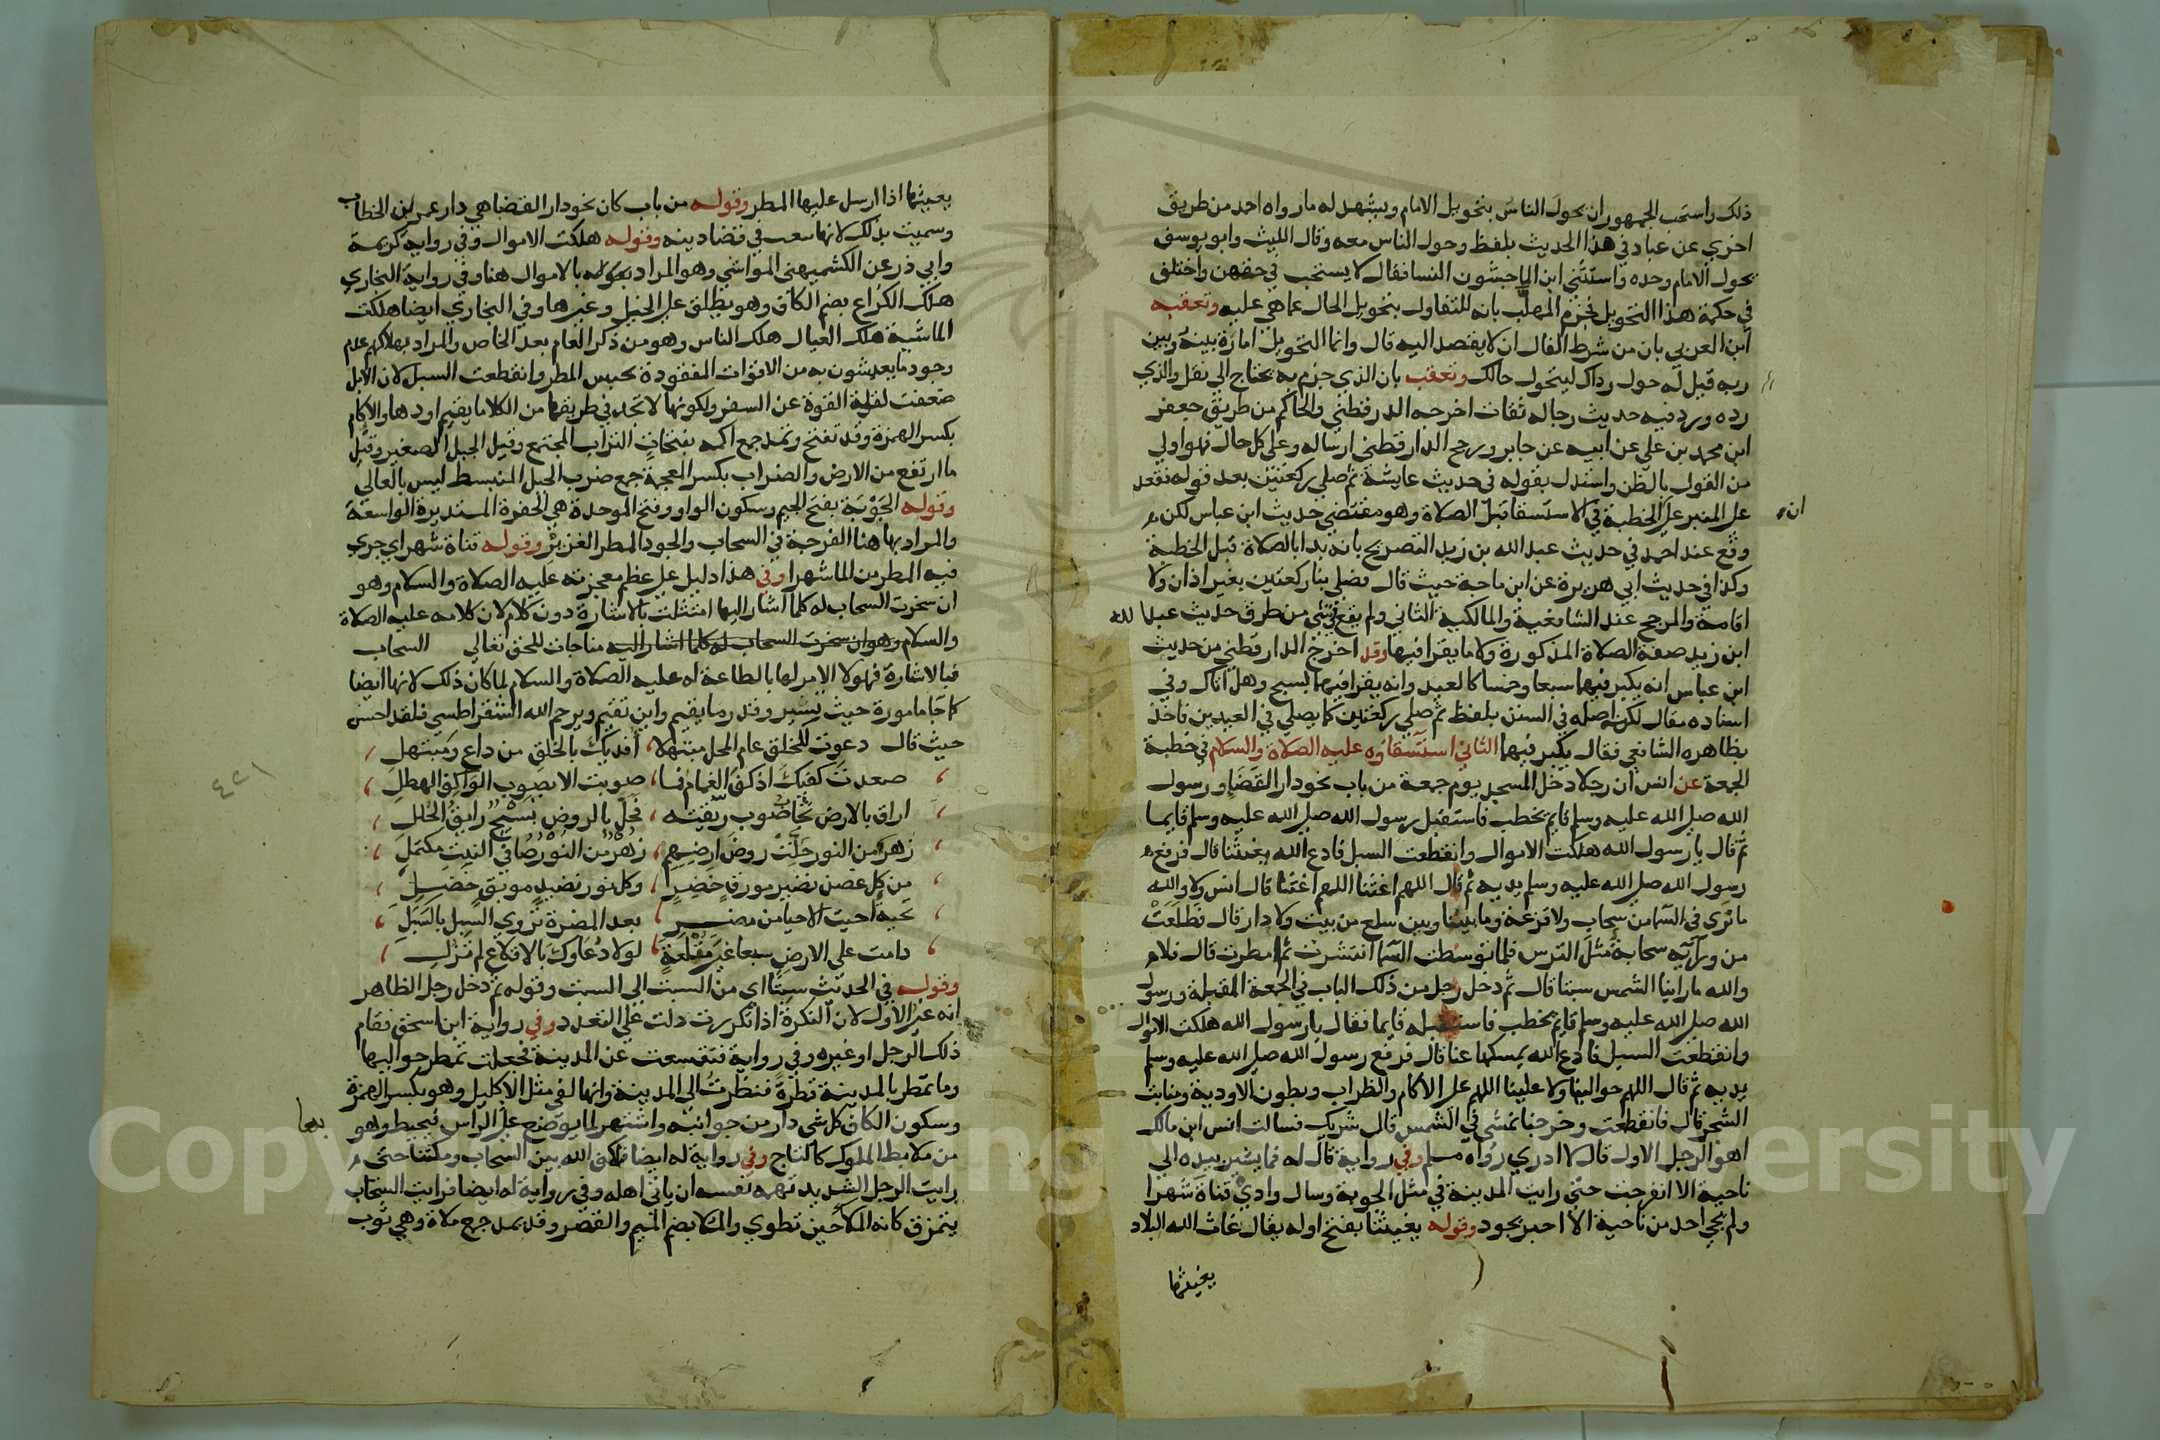 ذلك واستحب الجمهور ان يحول الناس بتحويل الامام ويشهد له مارواه احمد من طريق
اخري عن عباد في هذا الحديث بلفظ وحول الناس معه وقال الليث وابو يوسف
يحول الامام وحده واستثني ابن الماجشون النسا فقال لا يستحب في حقهن واختلف
في حكمة هذا التحويل فجزم المهلب بانه للتفاول بتحويل الحال عما هي عليه وتعقبه
ابن العربي بان من شرط الفال ان لا يقصد اليه قال وانما التحويل امارة بينه وبين
ربه قيل له حول رداك ليتحول حالك وتعقب بان الذي جزم به يحتاج الي نقل والذي
رده ورد فيه حديث رجاله ثقات اخرجه الدارقطني والحاكم من طريق جعفر
ابن محمد بن علي عن ابيه عن جابر ورجح الدارقطني ارساله وعلي كل حال فهو اولي
من القول بالظن واستدل بقوله في حديث عايشة ثم صلي ركعتين بعد قوله فقعد
علي المنبر علي ان الخطبة في الاستسقا قبل الصلاة وهو مقتضي حديث ابن عباس لكن
وقع عند احمد في حديث عبد الله بن زيد التصريح بانه بدا بالصلاة قبل الخطبة
وكذا في حديث ابي هريرة عن ابن ماجة حيث قال فصلي بنا ركعتين بغير اذان ولا
اقامة والمرجح عند الشافعية والمالكية الثاني ولم يقع في شي من طرق حديث عبد الله
ابن زيد صفة الصلاة المذكورة ولا ما يقرا فيها وقد اخرج الدارقطني من حديث
ابن عباس انه يكبر فيها سبعا وخمسا كالعيد وانه يقرا فيهما بسبح وهل اتاك وفي
اسناده مقال لكن اصله في السنن بلفظ ثم صلي ركعتين كما يصلي في العيدين فاخذ
بظاهره الشافعي فقال يكبر فيهما الثاني استسقاوه عليه الصلاة والسلام في خطبة
الجمعة عن انس ان رجلا دخل المسجد يوم جمعة من باب نحو دار القضا ورسول
الله صلى الله عليه وسلم قايم يخطب فاستقبل رسول الله صلى الله عليه وسلم قايما
ثم قال يا رسول الله هلكت الاموال وانقطعت السبل فادع الله يغيثنا قال فرفع
رسول الله صلى الله عليه وسلم يديه ثم قال اللهم اغثنا اللهم اغثنا قال انس ولا والله
ما نري في السما من سحاب ولا قزعة وما بيننا وبين سلع من بيت ولا دار قال فطلعت
من ورائه سحابة مثل الترس فلما توسطت السما انتشرت ثم امطرت قال فلا
والله ما راينا الشمس سبتا قال ثم دخل رجل من ذلك الباب في الجمعة المقبلة ورسول
الله صلى الله عليه وسلم قايم يخطب فاستقبله قايما فقال يا رسول الله هلكت الاموال
وانقطعت السبل فادع الله يمسكها عنا قال فرفع رسول الله صلى الله عليه وسلم
يديه ثم قال اللهم حوالينا ولا علينا اللهم علي الاكام والظراب وبطون الاودية ومنابت
الشجر قال فانقطعت وخرجنا نمشي في الشمس قال شريك فسالت انس ابن مالك
اهو الرجل الاول قال لا ادري رواه مسلم وفي رواية قال له فما يشير بيده الي
ناحية الا انفرجت حتي رايت المدينة في مثل الجوبة وسال وادي قناة شهرا
ولم يجي احد من ناحية الا اخبر بجود وقوله يغيثنا بفتح اوله يقال غاث الله البلاد
يغيثها
يغيثها اذا ارسل عليها المطر وقوله من باب كان نحو دار القضا هي دار عمر ابن الخطاب
وسميت بذلك لانها بيعت في قضا دينه وقوله هلكت الاموال وفي رواية كريمة
وابي ذر عن الكشميهني المواشي وهو المراد بقوله بالاموال هنا وفي رواية البخاري
هلك الكراع بضم الكاف وهو يطلق علي الخيل وغيرها وفي البخاري ايضا هلكت
الماشية هلك العيال هلك الناس وهو من ذكر العام بعد الخاص والمراد بهلاكهم عدم
وجود ما يعيشون به من الاقوات المفقودة بحبس المطر وانقطعت السبل لان الابل
ضعفت لقلة القوة عن السفر ولكونها لا تجد في طريقها من الكلا ما يقيم اودها والاكام
بكسر الهمزة وقد تفتح وتمد جمع اكمه بفتحات التراب المجتمع وقيل الجبل الصغير وقيل
ما ارتفع من الارض والضراب بكسر المعجمة جمع ضرب الجبل المنبسط ليس بالعالي
وقوله الجوبة بفتح الجيم وسكون الواو وفتح الموحدة هي الحفرة المستديرة الواسعة
والمراد بها هنا الفرجة في السحاب والجود المطر الغزير وقوله قناة شهرا اي جري
فيه المطر من الما شهرا وفي هذا دليل علي عظم معجزته عليه الصلاة والسلام وهو
ان سخرت السحاب له كلما اشار اليها امتثلت بالاشارة دون كلام لان كلامه عليه الصلاة
والسلام وهو ان سخرت السحاب له كلما اشار اليه مناجات للحق تعالي السحاب
فبالاشارة فلولا الامر لها بالطاعة له عليه الصلاة والسلام لما كان ذلك لانها ايضا
كما جا مامورة حيث تسير وقدر ما يقيم واين تقيم ويرحم الله الشقراطسي فلقد احسن
حيث قال دعوت للخلق عام المحل مبتهلا افديك بالخلق من داع ومبتهل
صعدت كفيك اذ كف الغمام فما صوبت الا بصوب الواكف الهطل
اراق بالارض ثجا صوب ريقته فحل بالروض نسج رايق الحلل
زهر من النور حلت روض ارضهم زهر من النور صافي النبت مكتمل
من كل غصن نضير مورق خضر وكل نور نضيد مونق خضل
تحية احيت الاحيا من مضر بعد المضرة تروي السبل بالسبل
دامت علي الارض سبعا غير مقلعة لولا دعاوك بالاقلاع لم تزل
وقوله في الحديث سبتا اي من السبت الي السبت وقوله ثم دخل رجل الظاهر
انه غير الاول لان النكرة اذا تكررت دلت علي التعدد وفي رواية ابن اسحق فقام
ذلك الرجل او غيره وفي رواية فتقشعت عن المدينة فجعلت تمطر حواليها
وما تمطر بالمدينة قطرة فنظرت الي المدينة وانها لفي مثل الاكليل وهو بكسر الهمزة
وسكون الكاف كل شي دار من جوانبه واشتهر لما يوضع علي الراس فيحيط بها وهو
من ملابط الملوك كالتاج وفي رواية له ايضا فالف الله بين السحاب ومكثنا حتي
رايت الرجل الشديد تهمه نفسه ان ياتي اهله وفي رواية له ايضا فرايت السحاب
يتمزق كانه الملا حين تطوي والملا بضم الميم والقصر وقد يمد جمع ملاة وهي ثوب
٤٢١
Copy King University